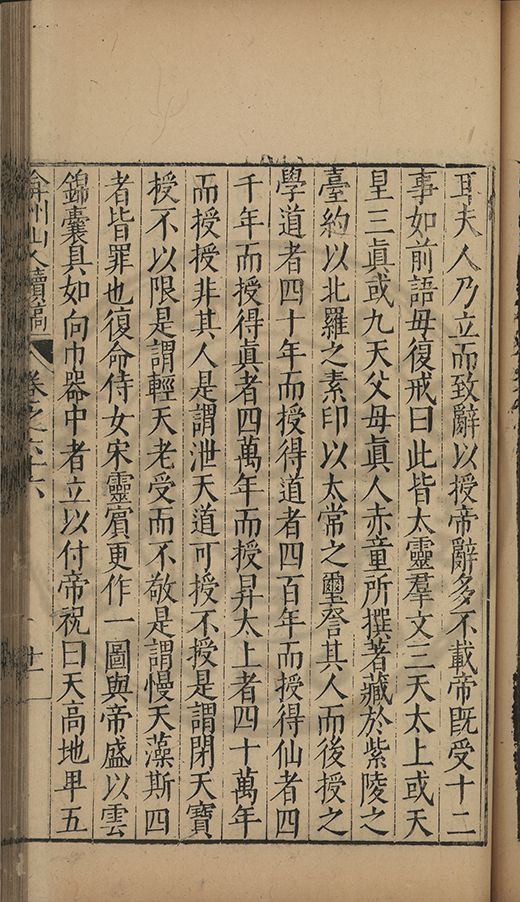 耳夫人乃立而致辭以授帝辭多不載帝旣受十二
事如前語毋復戒曰此皆太靈羣文三天太上或天
皇三眞或九天父母眞人赤童所撰著藏於紫陵之
臺約以北羅之素印以太常之璽詧其人而後授之
學道者四十年而授得道者四百年而授得仙者四
千年而授得眞者四萬年而授昇太上者四十萬年
而授授非其人是謂泄天道可授不授是謂閉天寶
授不以限是謂輕天老受而不敬是謂慢天藻斯四
者皆罪也復命侍女宋靈賓更作一圖與帝盛以雲
錦囊具如向巾器中者立以付帝祝曰天高地卑五
弇州山人續稿 卷之六十六 十一